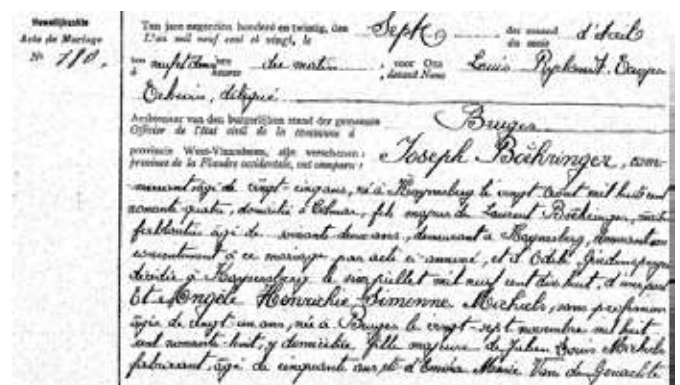 Huwelijksakte
Acte de Mariage
N° 110.
Ten jare negentien honderd en twintig, den Sept der maand d'avril
L'an mil neuf cent et vingt, le du mois
ten neuf heures du matin, voor Ons Louis
à heures devant Nous
délégué
Ambtenaar van den burgerlijken stand der gemeente Bruges
Officier de l'état civil de la commune à
provincie West-Vlaanderen, zijn verschenen: Joseph Boehringer, com-
province de la Flandre occidentale, ont comparu:
âgé de vingt-cinq ans, né à Kaysersberg le vingt août mil huit cent
nonante quatre, domicilié à Colmar, fils majeur de Laurent Boehringer,
ferblantier âgé de soixante deux ans, demeurant à Kaysersberg, donnant son
consentement à ce mariage par acte ci-annexé, et d'Odile
décédée à Kaysersberg le six juillet mil neuf cent dix huit, d'une part
Et Angèle Simonne Michiels, sans profession
âgée de vingt un ans, née à Bruges le vingt-sept novembre mil huit
cent nonante huit, y domiciliée, fille majeure de Julien Louis Michiels
fabricant, âgé de cinquante ans, et d'Emma Marie Van de